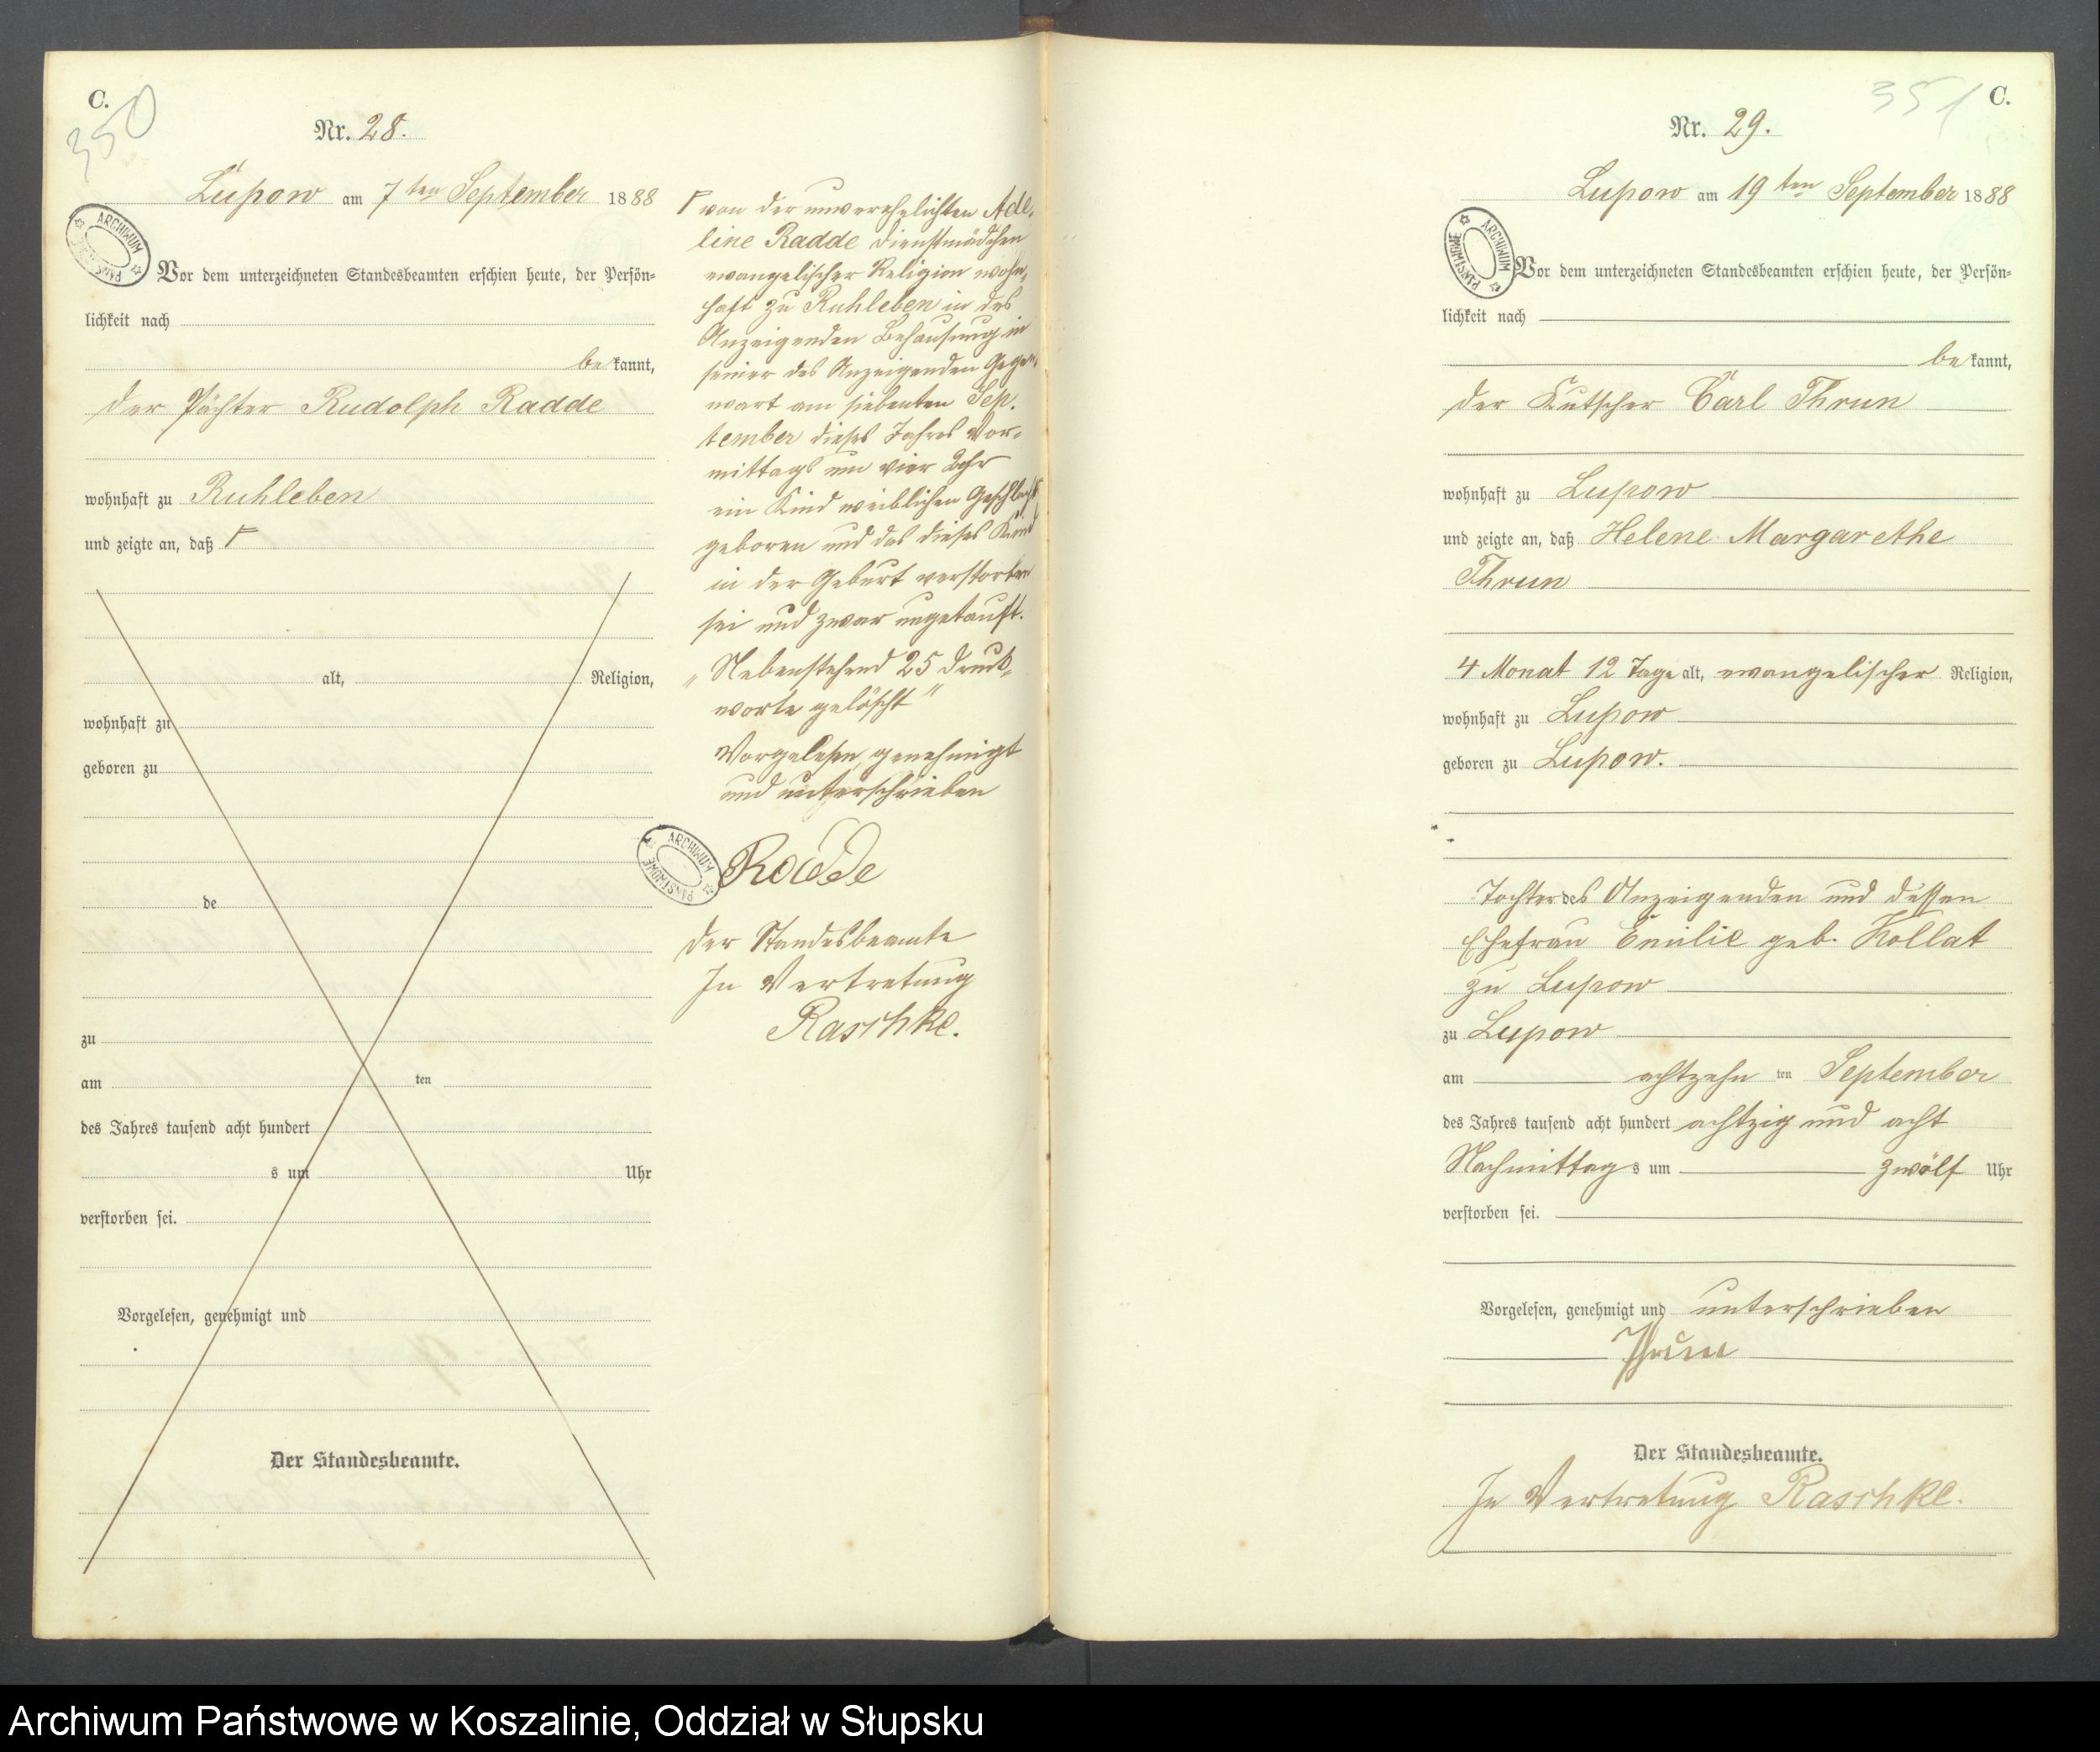 C.
350
Nr. 28.
Lupow am 7ten September 1888
ARCHIWUM PAŃSTWOWE
Vor dem unterzeichneten Standesbeamten erschien heute, der Persön-
lichkeit nach
bekannt,
der Pächter Rudolph Radde
wohnhaft zu Ruhleben
und zeigte an, daß Γ
alt, Religion,
wohnhaft zu
geboren zu
de
zu
am ten
des Jahres tausend acht hundert
s um Uhr
verstorben sei.
Vorgelesen, genehmigt und
Der Standesbeamte.
Γ von der unverehelichten Ade-
line Radde Dienstmädchen
evangelischer Religion wohn-
haft zu Ruhleben in des
Anzeigenden Behausung in
seiner des Anzeigenden Gegen-
wart am siebenten Sep-
tember dieses Jahres Vor-
mittags um vier Uhr
ein Kind weiblichen Geschlechts
geboren und das dieses Kind
in der Geburt verstorben
sei und zwar ungetauft.
„Nebenstehend 25 Druck-
worte gelöscht"
Vorgelesen, genehmigt
und unterschrieben
ARCHIWUM PAŃSTWOWE
Radde
Der Standesbeamte
In Vertretung
Raschke.
351
C.
Nr. 29.
Lupow am 19ten September 1888
ARCHIWUM PAŃSTWOWE
Vor dem unterzeichneten Standesbeamten erschien heute, der Persön-
lichkeit nach
bekannt,
der Kutscher Carl Thrun
wohnhaft zu Lupow
und zeigte an, daß Helene Margarethe
Thrun
4 Monat 12 Tage alt, evangelischer Religion,
wohnhaft zu Lupow
geboren zu Lupow.
Tochter des Anzeigenden und dessen
Ehefrau Emilie geb. Kollat
zu Lupow
zu Lupow
am achtzehn ten September
des Jahres tausend acht hundert achtzig und acht
Nachmittags um zwölf Uhr
verstorben sei.
Vorgelesen, genehmigt und unterschrieben
Thrun
Der Standesbeamte.
In Vertretung Raschke.
Archiwum Państwowe w Koszalinie, Oddział w Słupsku